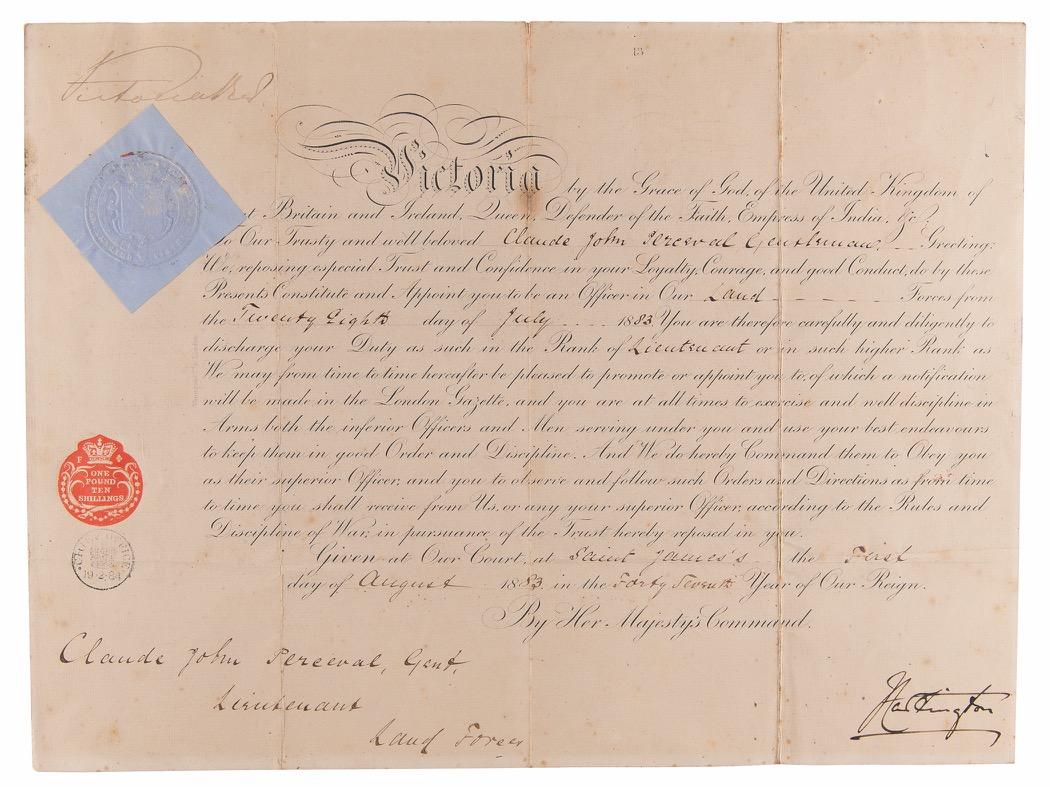 13
Victoria R & I
Victoria by the Grace of God, of the United Kingdom of
Britain and Ireland, Queen, Defender of the Faith, Empress of India, &c.
To Our Trusty and well beloved Claude John Perceval Gentleman, Greeting:
We, reposing especial Trust and Confidence in your Loyalty, Courage, and good Conduct, do by these
Presents Constitute and Appoint you to be an Officer in Our Land - - - - - Forces from
the Twenty Eighth day of July .... 1883. You are therefore carefully and diligently to
discharge your Duty as such in the Rank of Lieutenant or in such higher Rank as
We may from time to time hereafter be pleased to promote or appoint you to, of which a notification
will be made in the London Gazette, and you are at all times to exercise and well discipline in
Arms both the inferior Officers and Men serving under you and use your best endeavours
to keep them in good Order and Discipline. And We do hereby Command them to Obey you
as their superior Officer, and you to observe and follow such Orders and Directions as from time
to time you shall receive from Us, or any your superior Officer, according to the Rules and
Discipline of War, in pursuance of the Trust hereby reposed in you.
ONE
POUND
TEN
SHILLINGS
19·2·84
Given at Our Court, at Saint James's the First
day of August 1883 in the Forty Seventh Year of Our Reign.
By Her Majesty's Command.
Claude John Perceval, Gent.
Lieutenant
Land Forces
Hartington